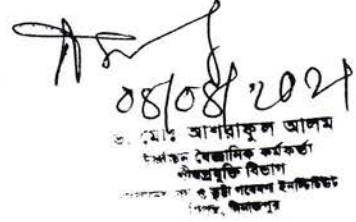 08/08/2021
ড. মোঃ আশরাফুল আলম
ঊর্ধ্বতন বৈজ্ঞানিক কর্মকর্তা
জীবপ্রযুক্তি বিভাগ
গম ও ভুট্টা গবেষণা ইনস্টিটিউট
দিনাজপুর